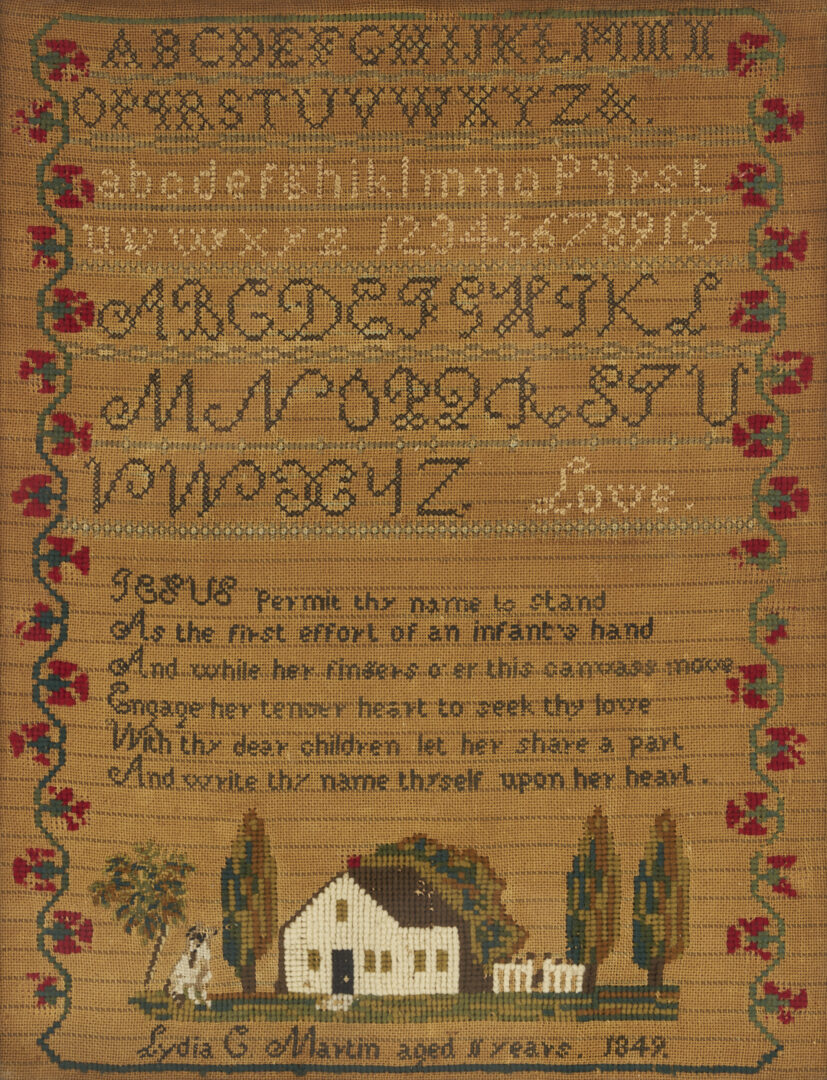 ABCDEFGHIJKLMN
OPQRSTUVWXYZ&.
abcdefghijklmnopqrst
uvwxyz 12345678910
ABCDEFGHIKL
MNOPQRSTU
VWXYZ Love.
JESUS Permit thy name to stand
As the first effort of an infant's hand
And while her fingers o'er this canvass move
Engage her tender heart to seek thy love
With thy dear children let her share a part
And write thy name thyself upon her heart.
Lydia C Martin aged 11 years. 1849.